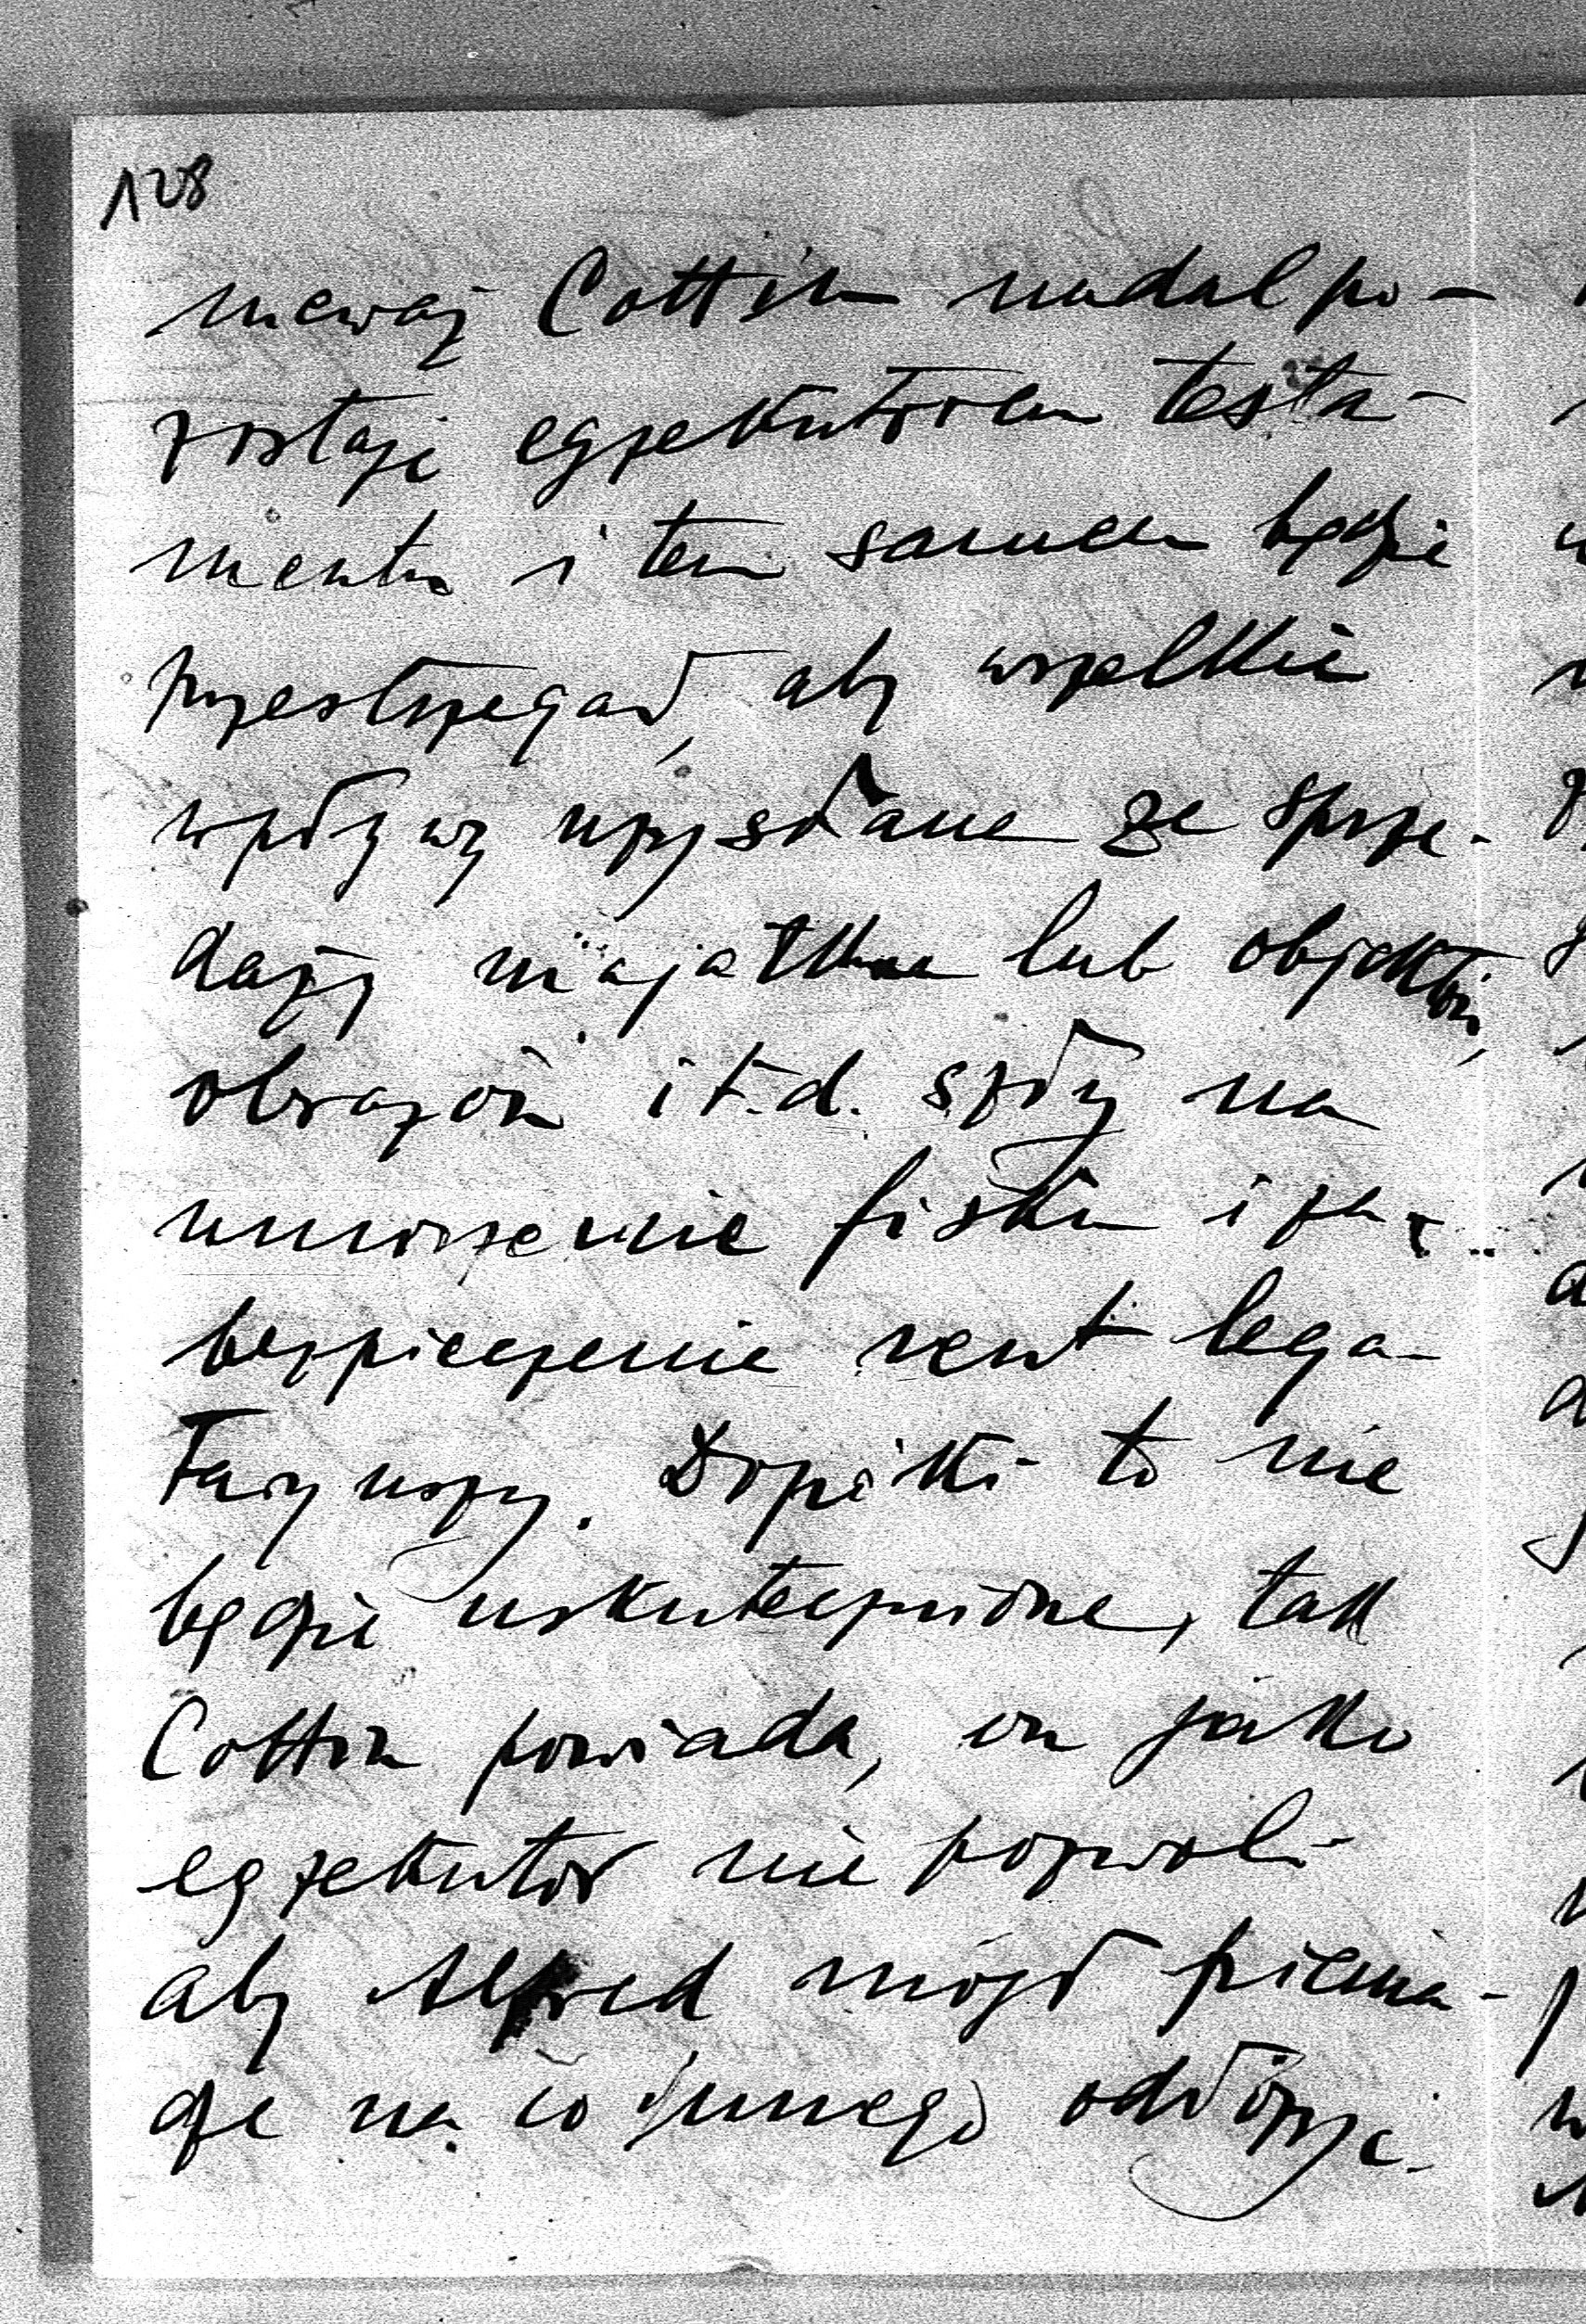 128
nieważ Cottin nadal po-
zostaje egzekutorem testa-
mentu i tem samem będzie
przestrzegał, aby wszelkie
wpływy uzyskane ze sprze-
daży majątku lub objektów,
obrazów i t.d. szły na
umorzenie fisku i za-
bezpieczenie rent lega-
taryuszy. Dopóki to nie
będzie uskutecznione, tak
Cottin powiada, on jako
egzekutor nie pozwoli
aby Alfred mógł pienią-
dze na co innego odłożyć.